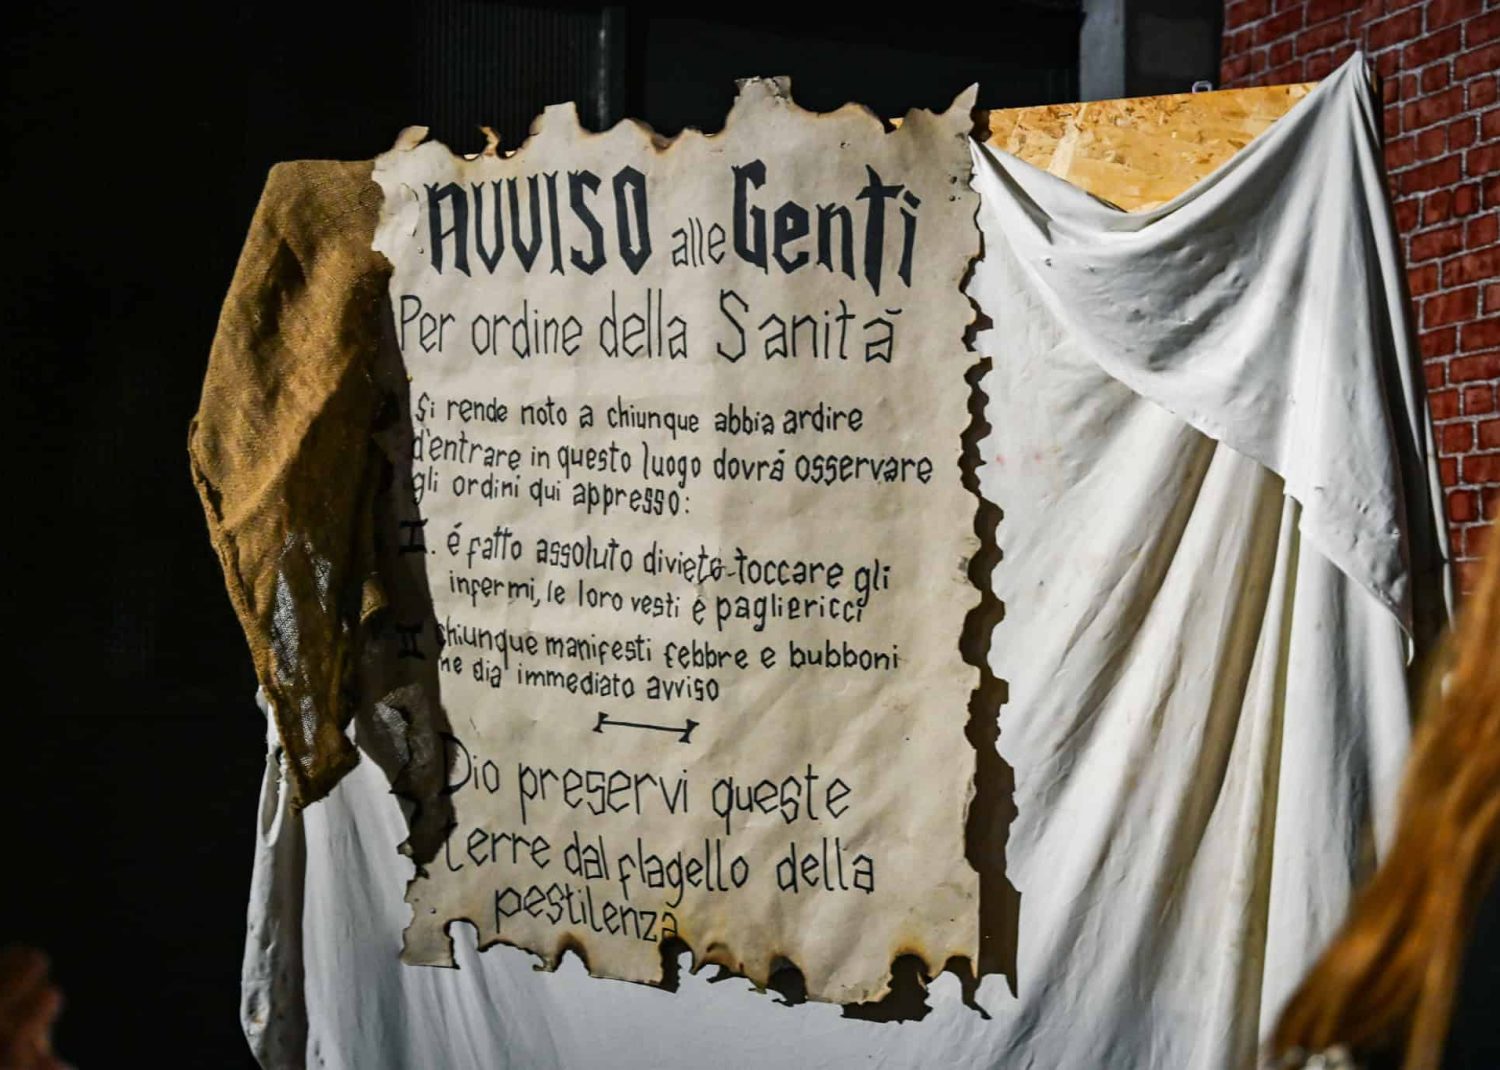 AVVISO alle Genti
Per ordine della Sanitá
Si rende noto a chiunque abbia ardire
d'entrare in questo luogo dovrá osservare
gli ordini qui appresso:
I. é fatto assoluto divieto toccare gli
infermi, le loro vesti e pagliericci
II chiunque manifesti febbre e bubboni
ne dia immediato avviso
Dio preservi queste
terre dal flagello della
pestilenza